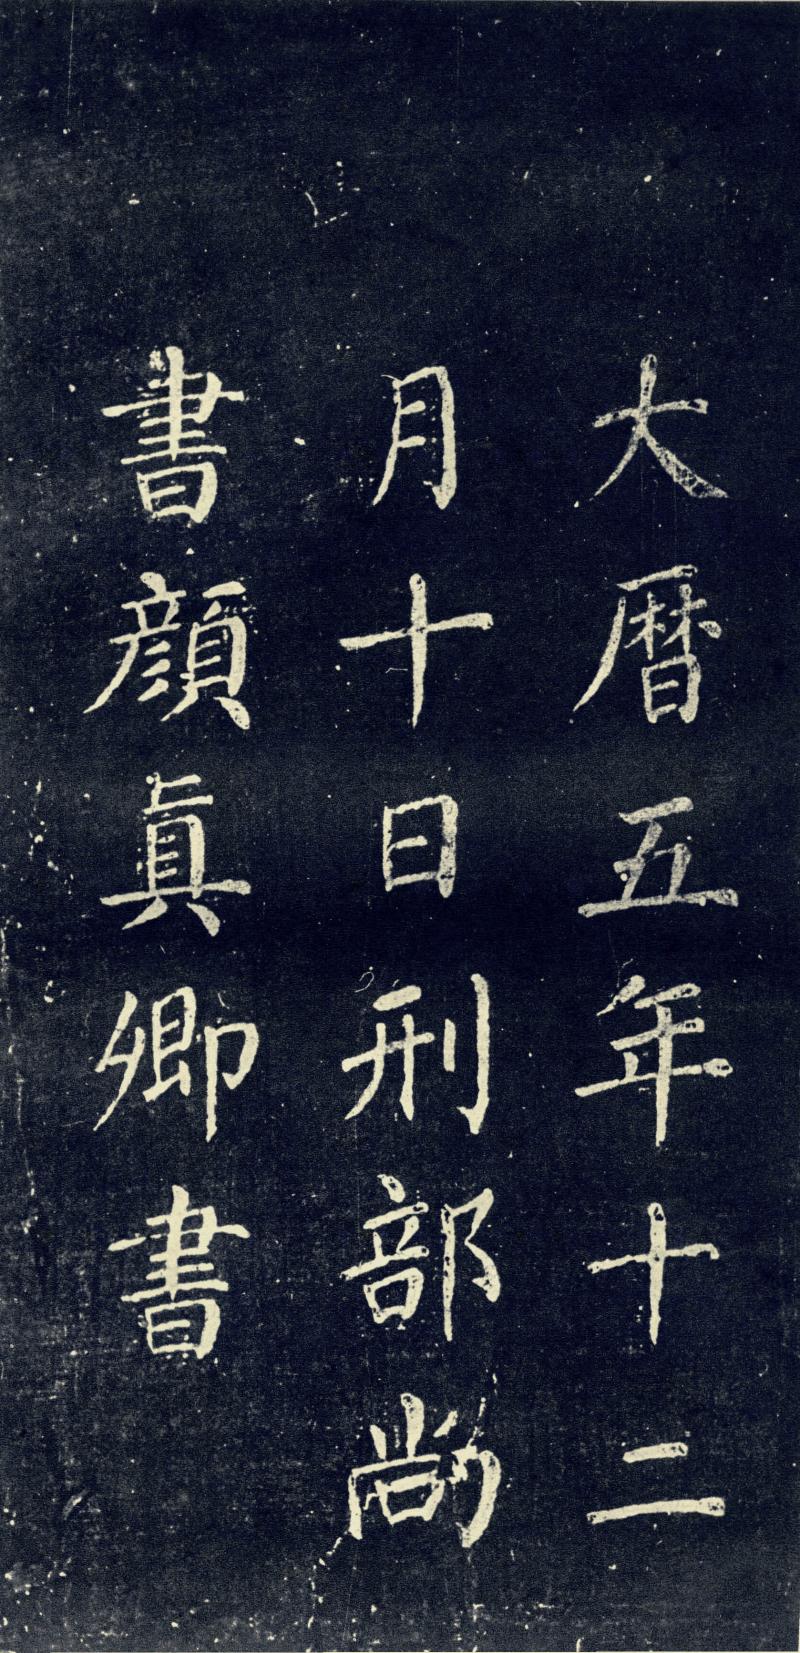 大曆五年十二
月十日刑部尚
書顏眞卿書